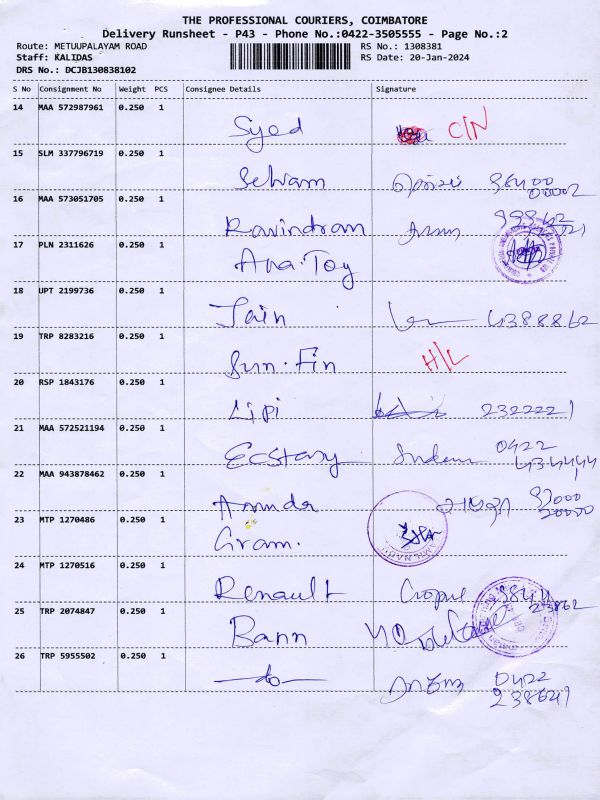 THE PROFESSIONAL COURIERS, COIMBATORE
Delivery Runsheet - P43 - Phone No.:0422-3505555 - Page No.:2
Route: METUUPALAYAM ROAD RS No.: 1308381
Staff: KALIDAS RS Date: 20-Jan-2024
DRS No.: DCJB130838102
S No Consignment No Weight PCS Consignee Details Signature
14 MAA 572987961 0.250 1
Syed C/N
15 SLM 337796719 0.250 1
Selvam 98400
00002
16 MAA 573051705 0.250 1
Ravindran
17 PLN 2311626 0.250 1
Ana. Toy
18 UPT 2199736 0.250 1
Jain 4388862
19 TRP 8283216 0.250 1
Sun. Fin H/L
20 RSP 1843176 0.250 1
Lipi 2322221
21 MAA 572521194 0.250 1
Ecstasy 0422
434444
22 MAA 943878462 0.250 1
23 MTP 1270486 0.250 1
Gram.
24 MTP 1270516 0.250 1
Renault 9844
23862
25 TRP 2074847 0.250 1
Bann
26 TRP 5955502 0.250 1
-do- 0422